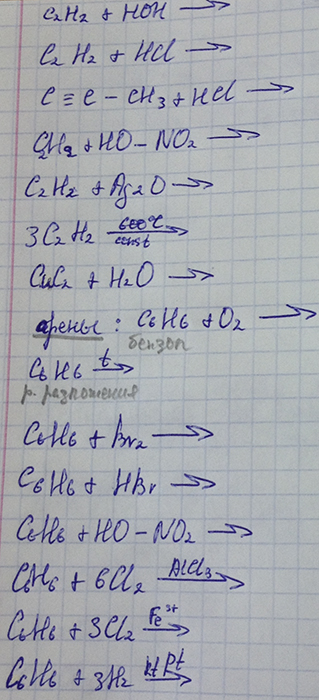 C₂H₂ + HOH →
C₂H₂ + HCl →
C ≡ C – CH₃ + HCl →
C₂H₂ + HO – NO₂ →
C₂H₂ + Ag₂O →
3C₂H₂ 600°C const →
CuC₂ + H₂O →
арены : C₆H₆ + O₂ →
бензол
C₆H₆ t →
р. разложения
C₆H₆ + Br₂ →
C₆H₆ + HBr →
C₆H₆ + HO – NO₂ →
C₆H₆ + 6Cl₂ AlCl₃ →
C₆H₆ + 3Cl₂ Fe →
C₆H₆ + 3H₂ kt Pt →